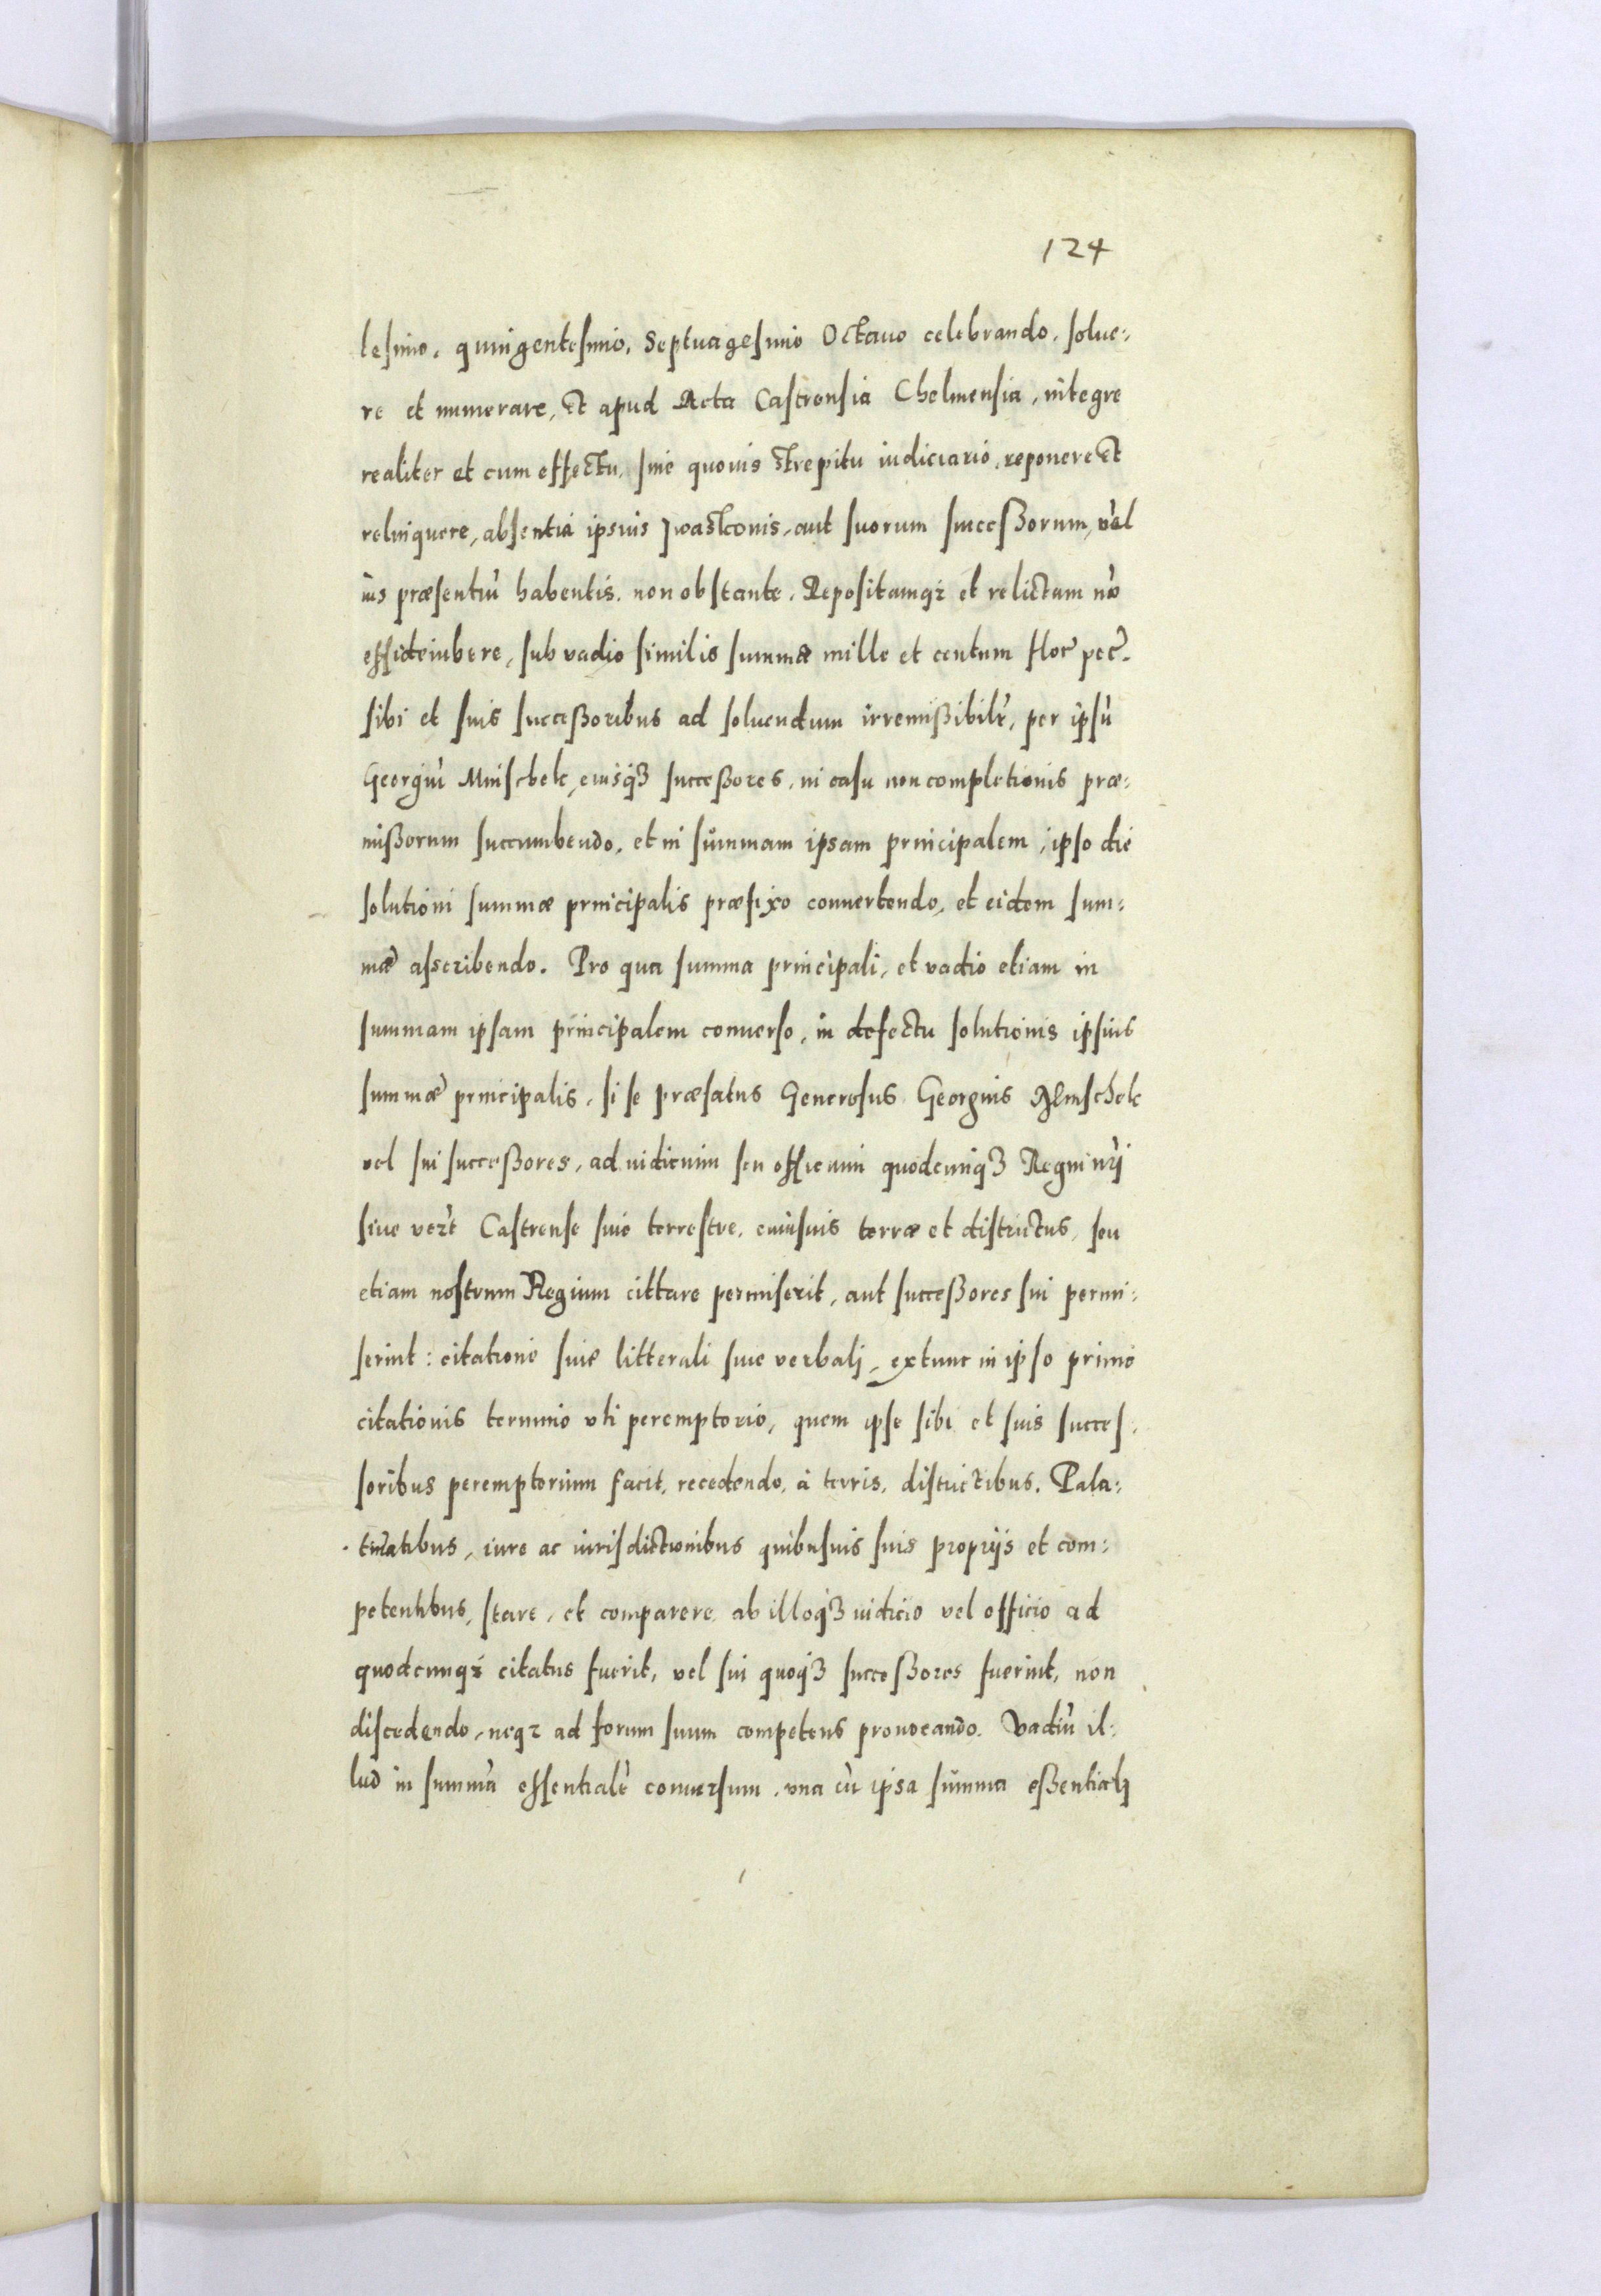 124
lesimo, quingentesimo, Septuagesimo Octauo celebrando, solue:
re et numerare, Et apud Acta Castrensia Chelmensia, integre
realiter et cum effectu, sine quouis strepitu iudiciario, reponere Et
relinquere, absentia ipsius Jwasconis, aut suorum successorum, vel
ius præsentiũ habentis, non obstante. Repositamqꝫ et relictam nõ
, sub vadio similis summæ mille et centum flor pec.
sibi et suis successoribus ad soluendum irremissibilr, per ipsũ
Georgiũ Mnischek, eiusqꝫ successores, in casu non completionis præ:
missorum succumbendo, et in summam ipsam principalem, ipso die
solutioni summæ principalis præfixo conuertendo, et eidem sum:
mæ asscribendo. Pro qua summa principali, et vadio etiam in
summam ipsam principalem conuerso, in defectu solutionis ipsius
summæ principalis, si se præfatus Generosus Georgius Mnischek
vel sui successores, ad iudicium seu officium quodcunqꝫ Regni nrj
siue Castrense siue terrestre, cuiusuis terræ et districtus, seu
etiam nostrum Regium cittare permiserit, aut successores sui permi:
serint: citatione siue litterali siue verbali, extunc in ipso primo
citationis termino vti peremptorio, quem ipse sibi et suis succes,
soribus peremptorium facit, recedendo, à terris, districtibus, Pala:
tinatibus, iure ac iurisdictionibus quibusuis suis proprijs et com:
petentibus, stare, et comparere, ab illoqꝫ iudicio vel officio ad
quodcunqꝫ citatus fuerit, vel sui quoqꝫ successores fuerint, non
discedendo, neqꝫ ad forum suum competens prouocando. Vadiũ il:
lud in summã essentialẽ conuersum, vna cũ ipsa summa essentiali